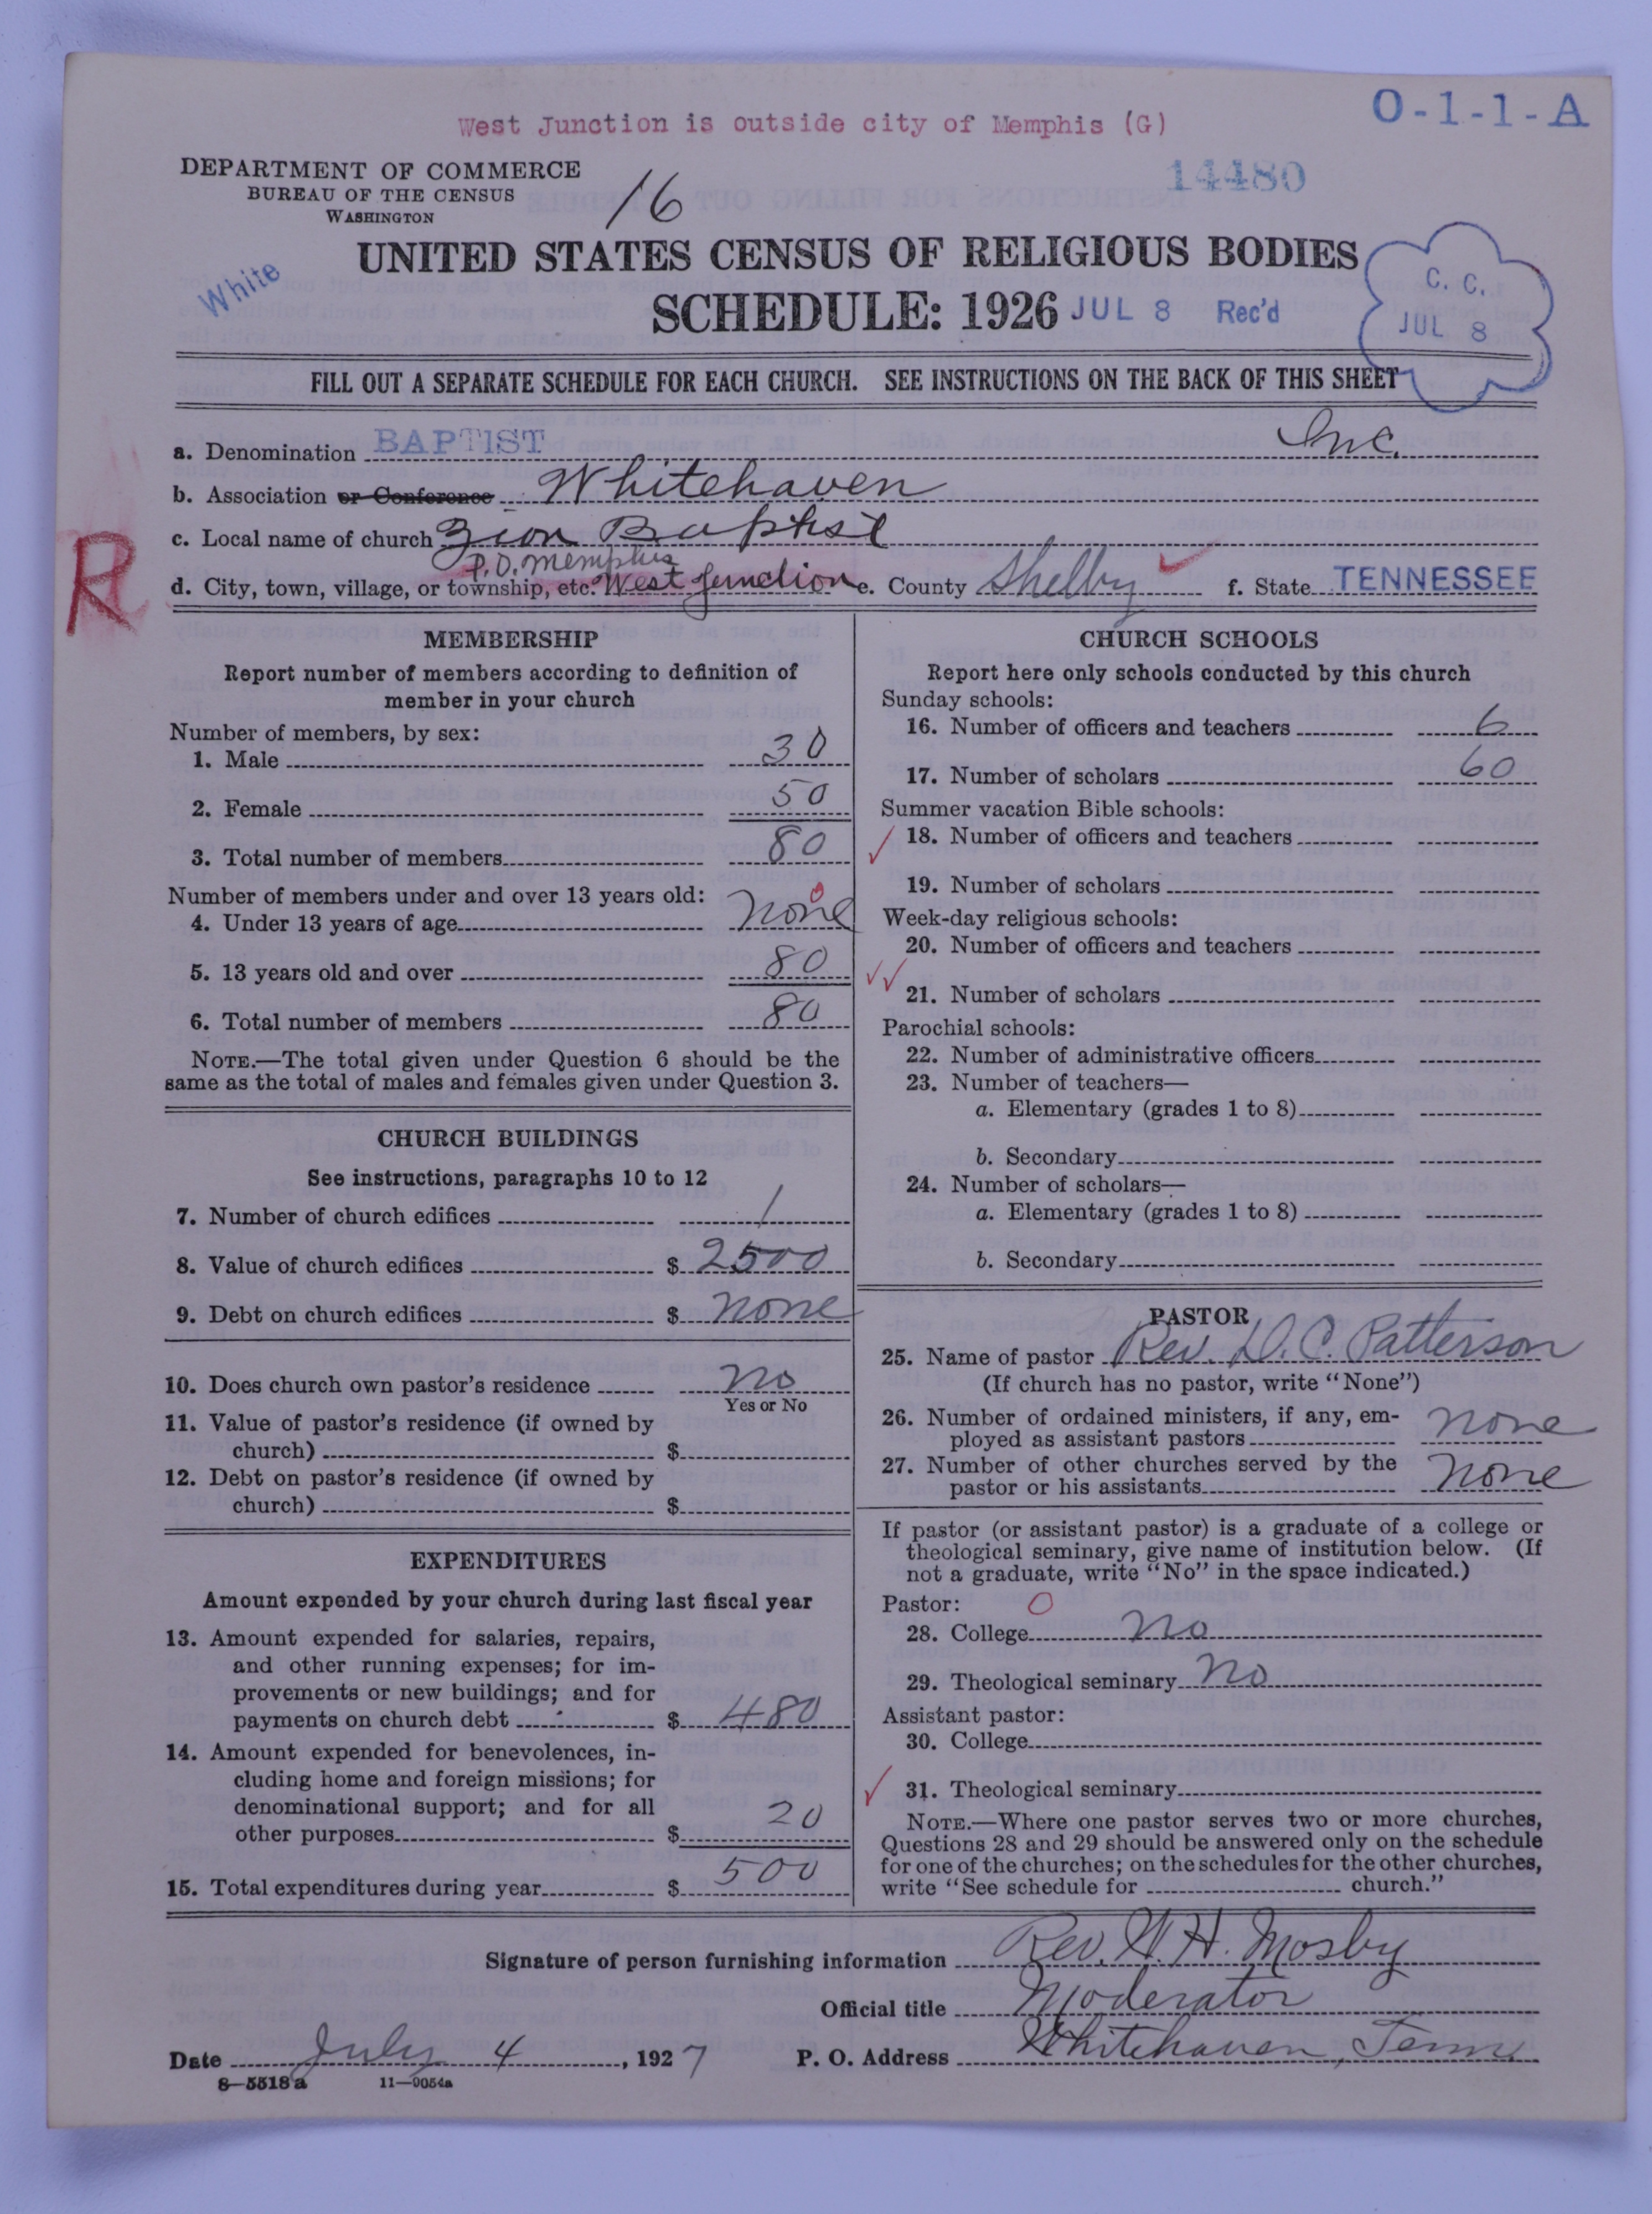 West Junction is outside city of Memphis (G)
O-1-1-A
DEPARTMENT OF COMMERCE
BUREAU OF THE CENSUS
WASHINGTON
16
14480
UNITED STATES CENSUS OF RELIGIOUS BODIES
White
SCHEDULE: 1926
JUL 8 Rec'd
C. C.
JUL 8
FILL OUT A SEPARATE SCHEDULE FOR EACH CHURCH. SEE INSTRUCTIONS ON THE BACK OF THIS SHEET
a. Denomination BAPTIST Inc.
b. Association or Conference Whitehaven
c. Local name of church Zion Baptist
P.O. Memphis
d. City, town, village, or township, etc. West Junction e. County Shelby f. State TENNESSEE
R
MEMBERSHIP
Report number of members according to definition of
member in your church
Number of members, by sex:
1. Male 30
2. Female 50
3. Total number of members 80
Number of members under and over 13 years old:
4. Under 13 years of age none
5. 13 years old and over 80
6. Total number of members 80
NOTE.—The total given under Question 6 should be the
same as the total of males and females given under Question 3.
CHURCH BUILDINGS
See instructions, paragraphs 10 to 12
7. Number of church edifices 1
8. Value of church edifices $ 2500
9. Debt on church edifices $ none
10. Does church own pastor's residence no
Yes or No
11. Value of pastor's residence (if owned by
church) $
12. Debt on pastor's residence (if owned by
church) $
EXPENDITURES
Amount expended by your church during last fiscal year
13. Amount expended for salaries, repairs,
and other running expenses; for im-
provements or new buildings; and for
payments on church debt $ 480
14. Amount expended for benevolences, in-
cluding home and foreign missions; for
denominational support; and for all
other purposes $ 20
15. Total expenditures during year $ 500
CHURCH SCHOOLS
Report here only schools conducted by this church
Sunday schools:
16. Number of officers and teachers 6
17. Number of scholars 60
Summer vacation Bible schools:
18. Number of officers and teachers
19. Number of scholars
Week-day religious schools:
20. Number of officers and teachers
21. Number of scholars
Parochial schools:
22. Number of administrative officers
23. Number of teachers—
a. Elementary (grades 1 to 8)
b. Secondary
24. Number of scholars—
a. Elementary (grades 1 to 8)
b. Secondary
PASTOR
25. Name of pastor Rev. D. C. Patterson
(If church has no pastor, write "None")
26. Number of ordained ministers, if any, em-
ployed as assistant pastors none
27. Number of other churches served by the
pastor or his assistants none
If pastor (or assistant pastor) is a graduate of a college or
theological seminary, give name of institution below. (If
not a graduate, write "No" in the space indicated.)
Pastor: 0
28. College No
29. Theological seminary No
Assistant pastor:
30. College
31. Theological seminary
NOTE.—Where one pastor serves two or more churches,
Questions 28 and 29 should be answered only on the schedule
for one of the churches; on the schedules for the other churches,
write "See schedule for church."
Signature of person furnishing information Rev. W. H. Mosby
Official title Moderator
Date July 4, 1927 P. O. Address Whitehaven, Tenn.
8—5518 a 11—9054a